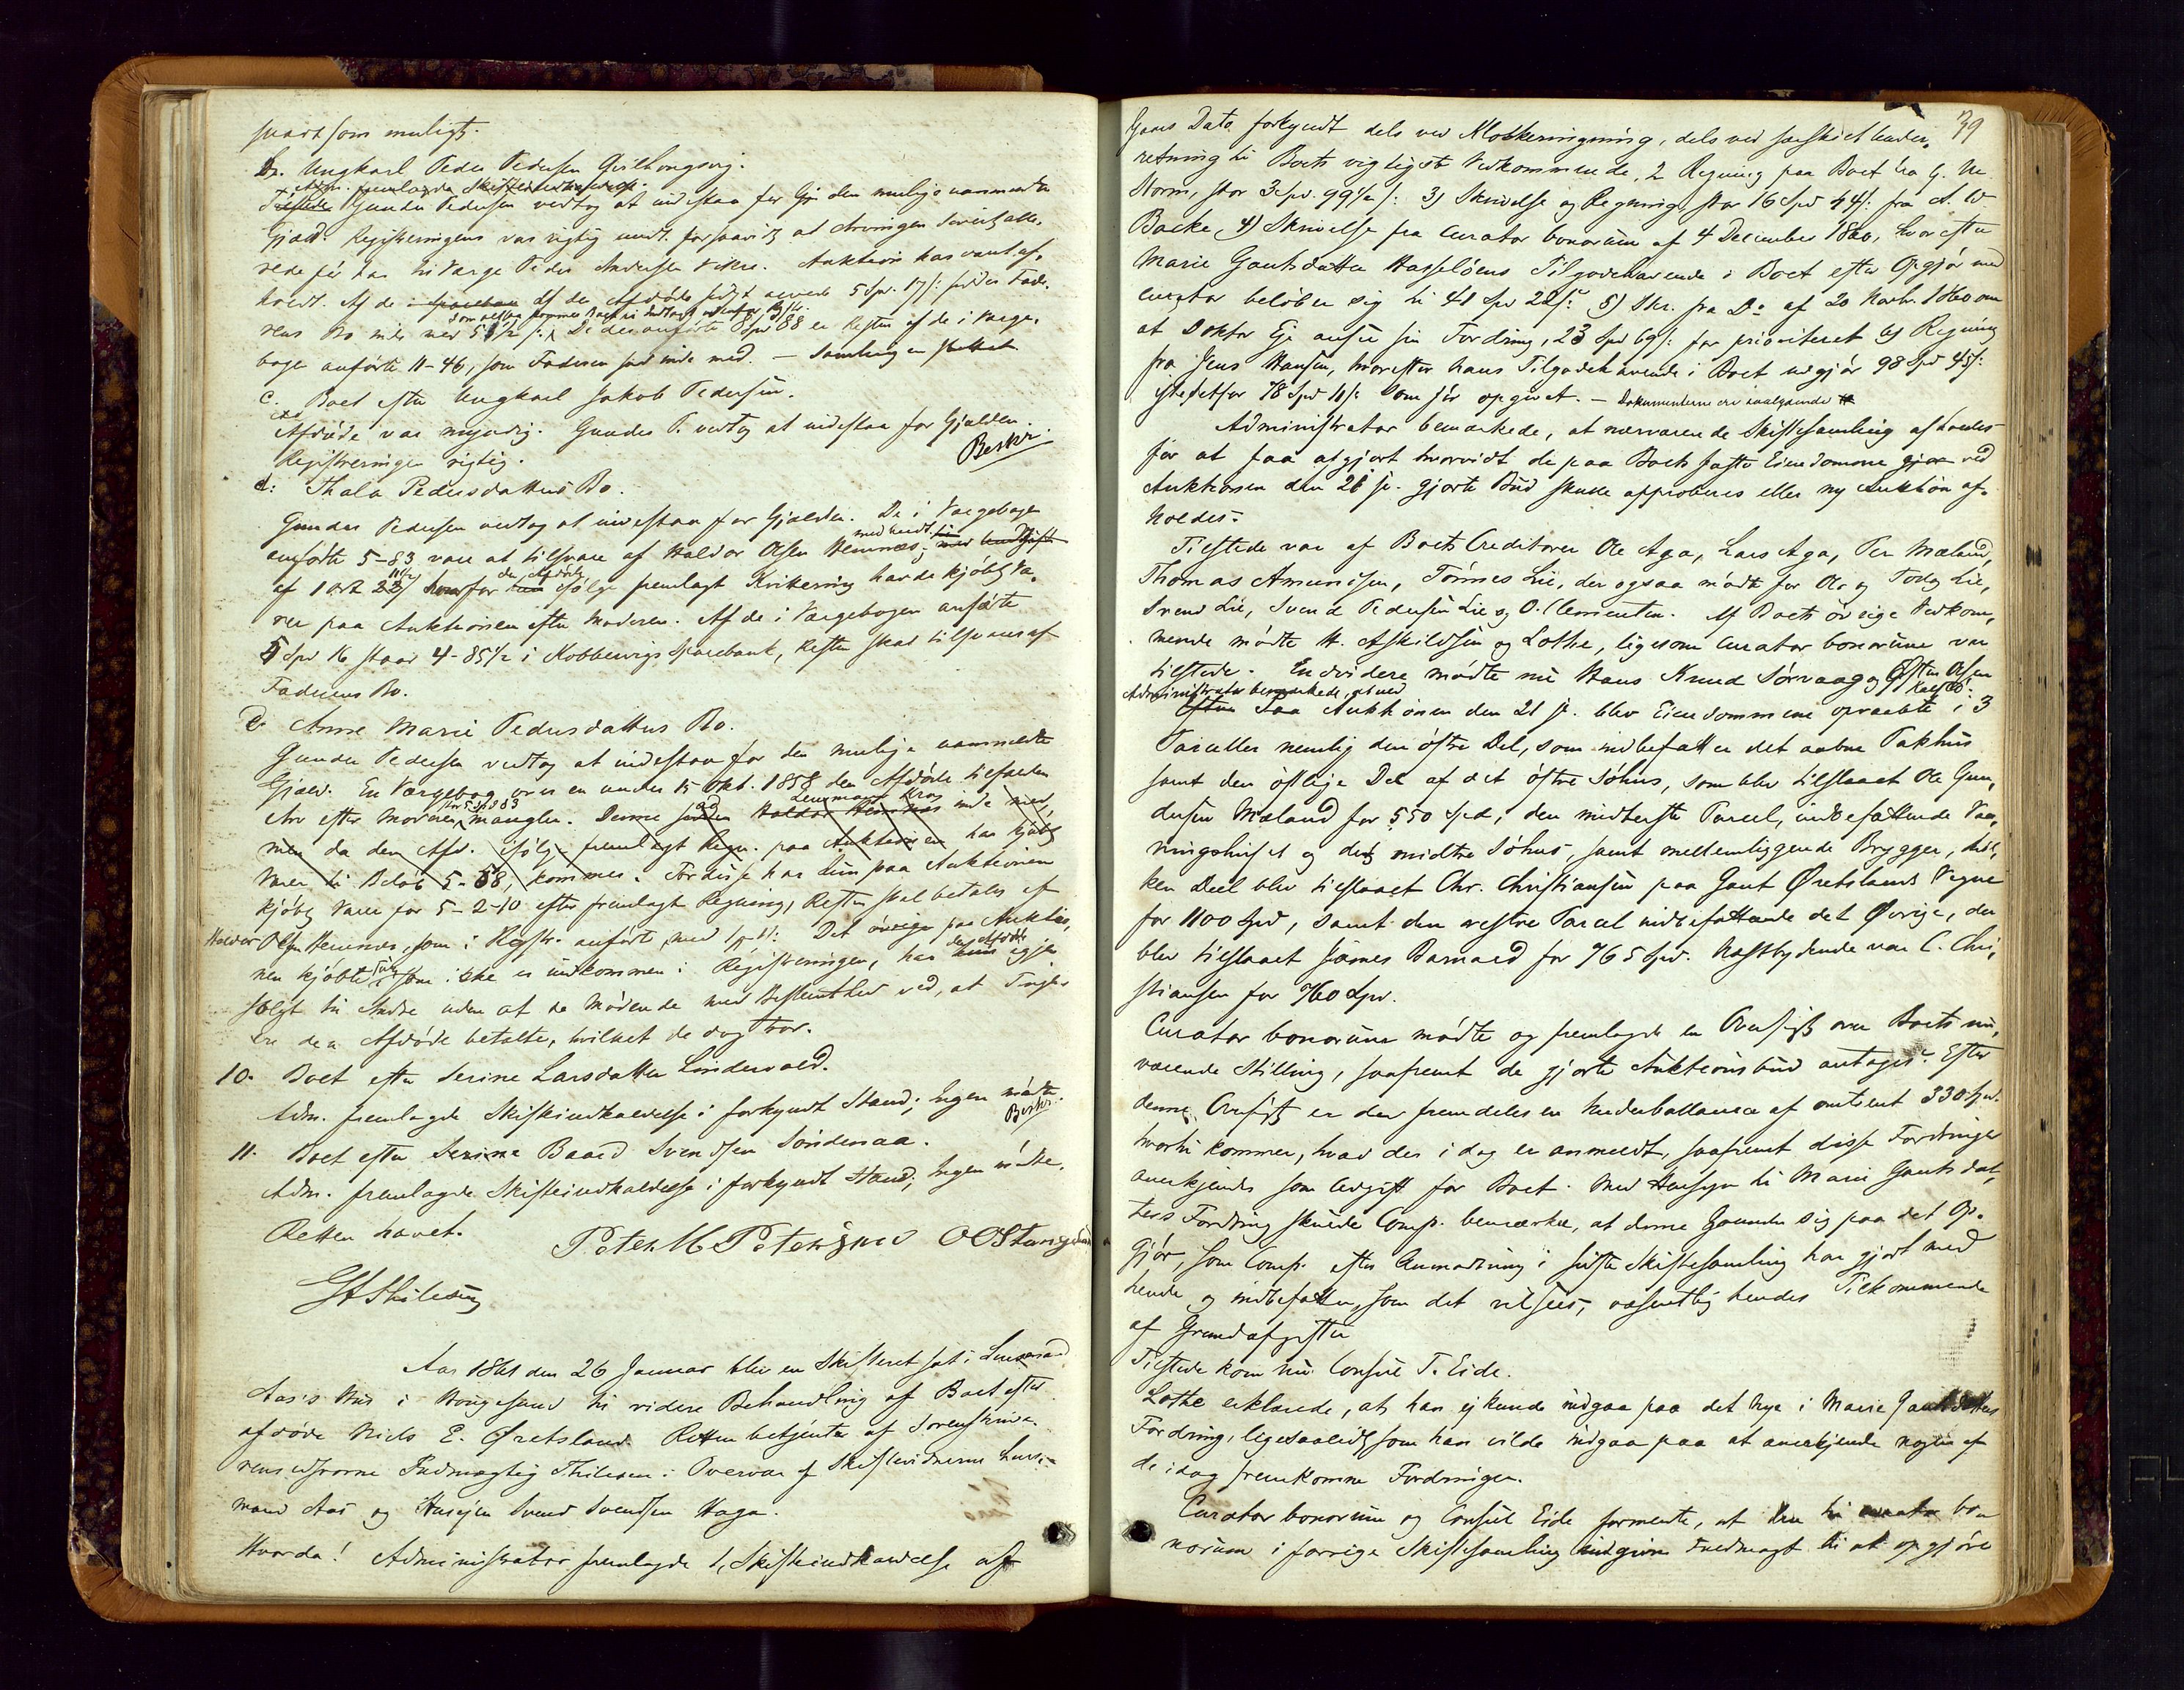 snart som muligt.
b. Ungkarl Peder Pedersen
Adm. fremlagde Skifteindkaldelse.
Tilstede Gunder Pedersen vedtog at indestaa for Gj den mulige uanmeldte
Gjæld. Registreringen var rigtig undt. forsaavidt at Arvingen Sivert alle,
rede før har til Værge Peder Andersen Vikre. Auktion har været af,
holdt. Af de Afdøde 5 Spd. 17 s: sidder Fade,
rens Bo inde med 51½ s:, De desanførte 8 Spd 88 er Resten af de i Værge,
bogen anførte 11-46, som Faderen sad inde med. — Samling er sluttet
c. Boet efter Ungkarl Jakob Pedersen.
Afdøde var myndig. Gunder P. vedtog at indestaa for Gjælden.
Registreringen rigtig. Beskr.
d: Thala Pedersdatters Bo.
Gunder Pedersen vedtog at indestaa for Gjælden. De i Værgebogen
anførte 5-83 vare at tilsvare af Haldor Olsen Hemnes; med undt.
af 1 ort 22 s hvorfor den Afdøde ifølge fremlagt Kvittering havde kjøbt Va,
rer paa Auktionen efter Moderen. Af de i Værgebogen anførte
5 Spd 16 staar 4-85½ i Kobbervigs Sparebank, Resten skal tilsvares af
Faderens Bo.
e. Anne Marie Pedersdatters Bo.
Gunder Pedersen vedtog at indestaa for den mulige uanmeldte
Gjæld. En Værgebog over en under 15 Okt. 1858 den Afdøde tilfalden
Arv efter Moderen stor 5 Spd 83 mangler. Denne sidder Haldor Hemnes Lensmand Krag inde med,
men da den Afd. ifølge fremlagt Regn. paa Auktionen har kjøbt
Varer til Beløb 5-58, kommer. Fordisse har hun paa Auktionen
kjøbt Varer for 5-2-10 efter fremlagt Regning, Resten skal betales af
Haldor Olsen Hemnes, som i Registr. anført med Det øvrige paa Auktio,
nen kjøbte som ikke er indkommen i Registreringen, har den Afdøde igjen
solgt til Andre uden at de Mødende med Bestemthed ved, at
ere den Afdøde betalte, hvilket de dog tror.
10. Boet efter Serine Larsdatter Lindervold.
Adm. fremlagde Skifteindkaldelse i forkyndt Stand; Ingen mødte.
Beskr.
11. Boet efter Baard Svendsen Søndenaa.
Adm. fremlagde Skifteindkaldelse i forkyndt Stand; Ingen mødte.
Retten hævet.
Peter M Petersen O O Stangeland
G Thilesen
Aar 1861 den 26 Januar blev en Skifteret sat i Lensmand
Aas's Hus i Haugesund til videre Behandling af Boet efter
afdøde Niels E. Øretsland. Retten betjentes af Sorenskrive,
rens edsvorne Fuldmægtig Thilesen i Overvær af Skiftevidnerne Lens-
mand Aas og Husejer Svend Svendsen Haga.
Hvorda! Administrator fremlagde 1, Skifteindkaldelse af
39
Gaars Dato forkyndt dels ved Klokkeringning, dels ved særskilt Under,
retning til Boets vigtigste Vedkommende, 2 Regning paa Boet fra G. M.
Storm, stor 3 Spd. 99½ s: 3) Skrivelse og Regning stor 16 Spd 44 s: fra A. W
Backe, 4) Skrivelse fra Curator bonorum af 4 December 1860, hvorefter
Marie Gautsdatter Hasseløens Tilgodehavende i Boet efter Opgjør med
curator beløber sig til 41 Spd 22 s: 5) Skr. fra Do af 20 Novbr. 1860 om
at Doktor Eje anser sin Fordring, 23 Spd 69 s: for prioriteret 6) Regning
fra Jens Hansen, hvorefter hans Tilgodehavende i Boet udgjør 98 Spd 45 s:
istedetfor 78 Spd 11 s: som før opgivet. — Dokumenterne ere saalydende
Administrator bemærkede, at nærværende Skiftesamling afholdes
for at faa afgjort hvorvidt de paa Boets faste Eiendomme gjor ved
Auktionen den 21 ds. gjorte Bud skulle approberes eller ny Auktion af,
holdes.
Tilstede var af Boets Creditorer Ole Aga, Lars Aga, Per Mæland,
Thomas Amundsen, Tønnes Lie, der ogsaa mødte for Ole og Tody Lie,
Svend Lie, Svend Pedersen Lie og O. Clementsen. Af Boets øvrige Vedkom,
mende mødte H. Askildsen og Lothe, ligesom Curator bonorum var
tilstede. Endvidere mødte nu Hans Knud Sørvaag og Østen Olsen
Kalstø.
Administrator bemærkede, at ved
Paa Auktionen den 21 ds. blev Eiendommene opraabte i 3
Parceller nemlig den østre Del, som indbefatter det aabne Pakhus
samt den østlige Del af det østre Søhus, som blev tilslaaet Ole Gun,
dersen Mæland for 550 Spd, den midterste Parcel, indbefattende Vaa,
ningshuset og det midtre Søhus, samt mellemliggende Brygger, hvil,
ken Deel blev tilslaaet Chr. Christiansen paa Gaut Øretslands Vegne
for 1100 Spd, samt den vestre Parcel indbefattende det Øvrige, der
blev tilslaaet James Barnard for 765 Spd. Næstbydende var C. Chri,
stiansen for 760 Spd.
Curator bonorum mødte og fremlagde en Oversigt over Boets nu,
værende Stilling, saafremt de gjorte Auktionsbud antages. Efter
denne Oversigt er der fremdeles en Underballance af omtrent 330 Spd.
hvortil kommer, hvad der i dag er anmeldt, saafremt disse Fordringer
anerkjendes som Udgift for Boet. Med Hensyn til Marie Gautsdat,
ters Fordring skulde Comp. bemærke, at denne Grunder sig paa det Op,
gjør, som Comp. efter Anmodning i sidste Skiftesamling har gjort med
hende og indbefatter, som det vil sees, væsentlig hendes Tilkommende
af Grundafgifter
Tilstede kom nu Consul T. Eide.
Lothe erklærede, at han ej kunde indgaa paa det Nye i Marie Gautsdatters
Fordring, ligesaalidt som han vilde indgaa paa at anerkjende nogen af
de idag fremkomne Fordringer.
Curator bonorum og Consul Eide formente, at den til curator bo-
norum i forrige Skiftesamling indgivne Fuldmagt til at opgjøre